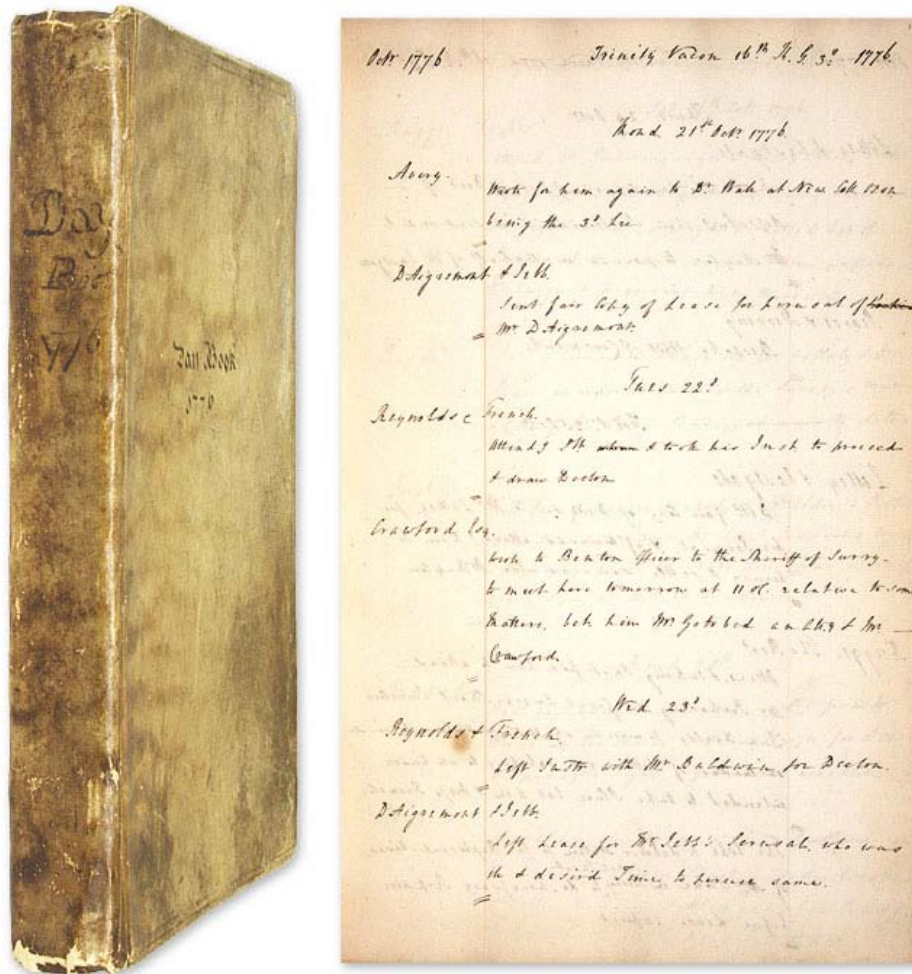 Day
Boo
1776
Day Book
1776
Octr. 1776 Trinity Vacon 16th K. G. 3d. 1776.
Mond 21st Octr. 1776
Avery.
Wrote for him again to Dr. at New Coll Oxon
being the 3d. Lre
DAigremont & Jebb.
Sent fair Copy of Lease for perusal of
Mr. DAigremont.
Tues 22d
Reynolds & French.
Attendg Plt & took his Inst to proceed
& draw Declon
Crawford Esq.
Wrote to Benton Officer to the Sheriff of Surry
to meet here tomorrow at 11 oC. relative to som
Matters betn him Mr. Gotobed an Atty & Mr.
Crawford.
Wed 23d
Reynolds & French.
Left Instr with Mr. Baldwin for Declon.
DAigremont & Jebb.
Left Lease for Mr. Jebb's Perusal, who was
& desird Time to peruse same.